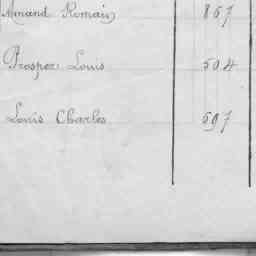 Amand Romain 857
Prosper Louis 504
Louis Charles 597